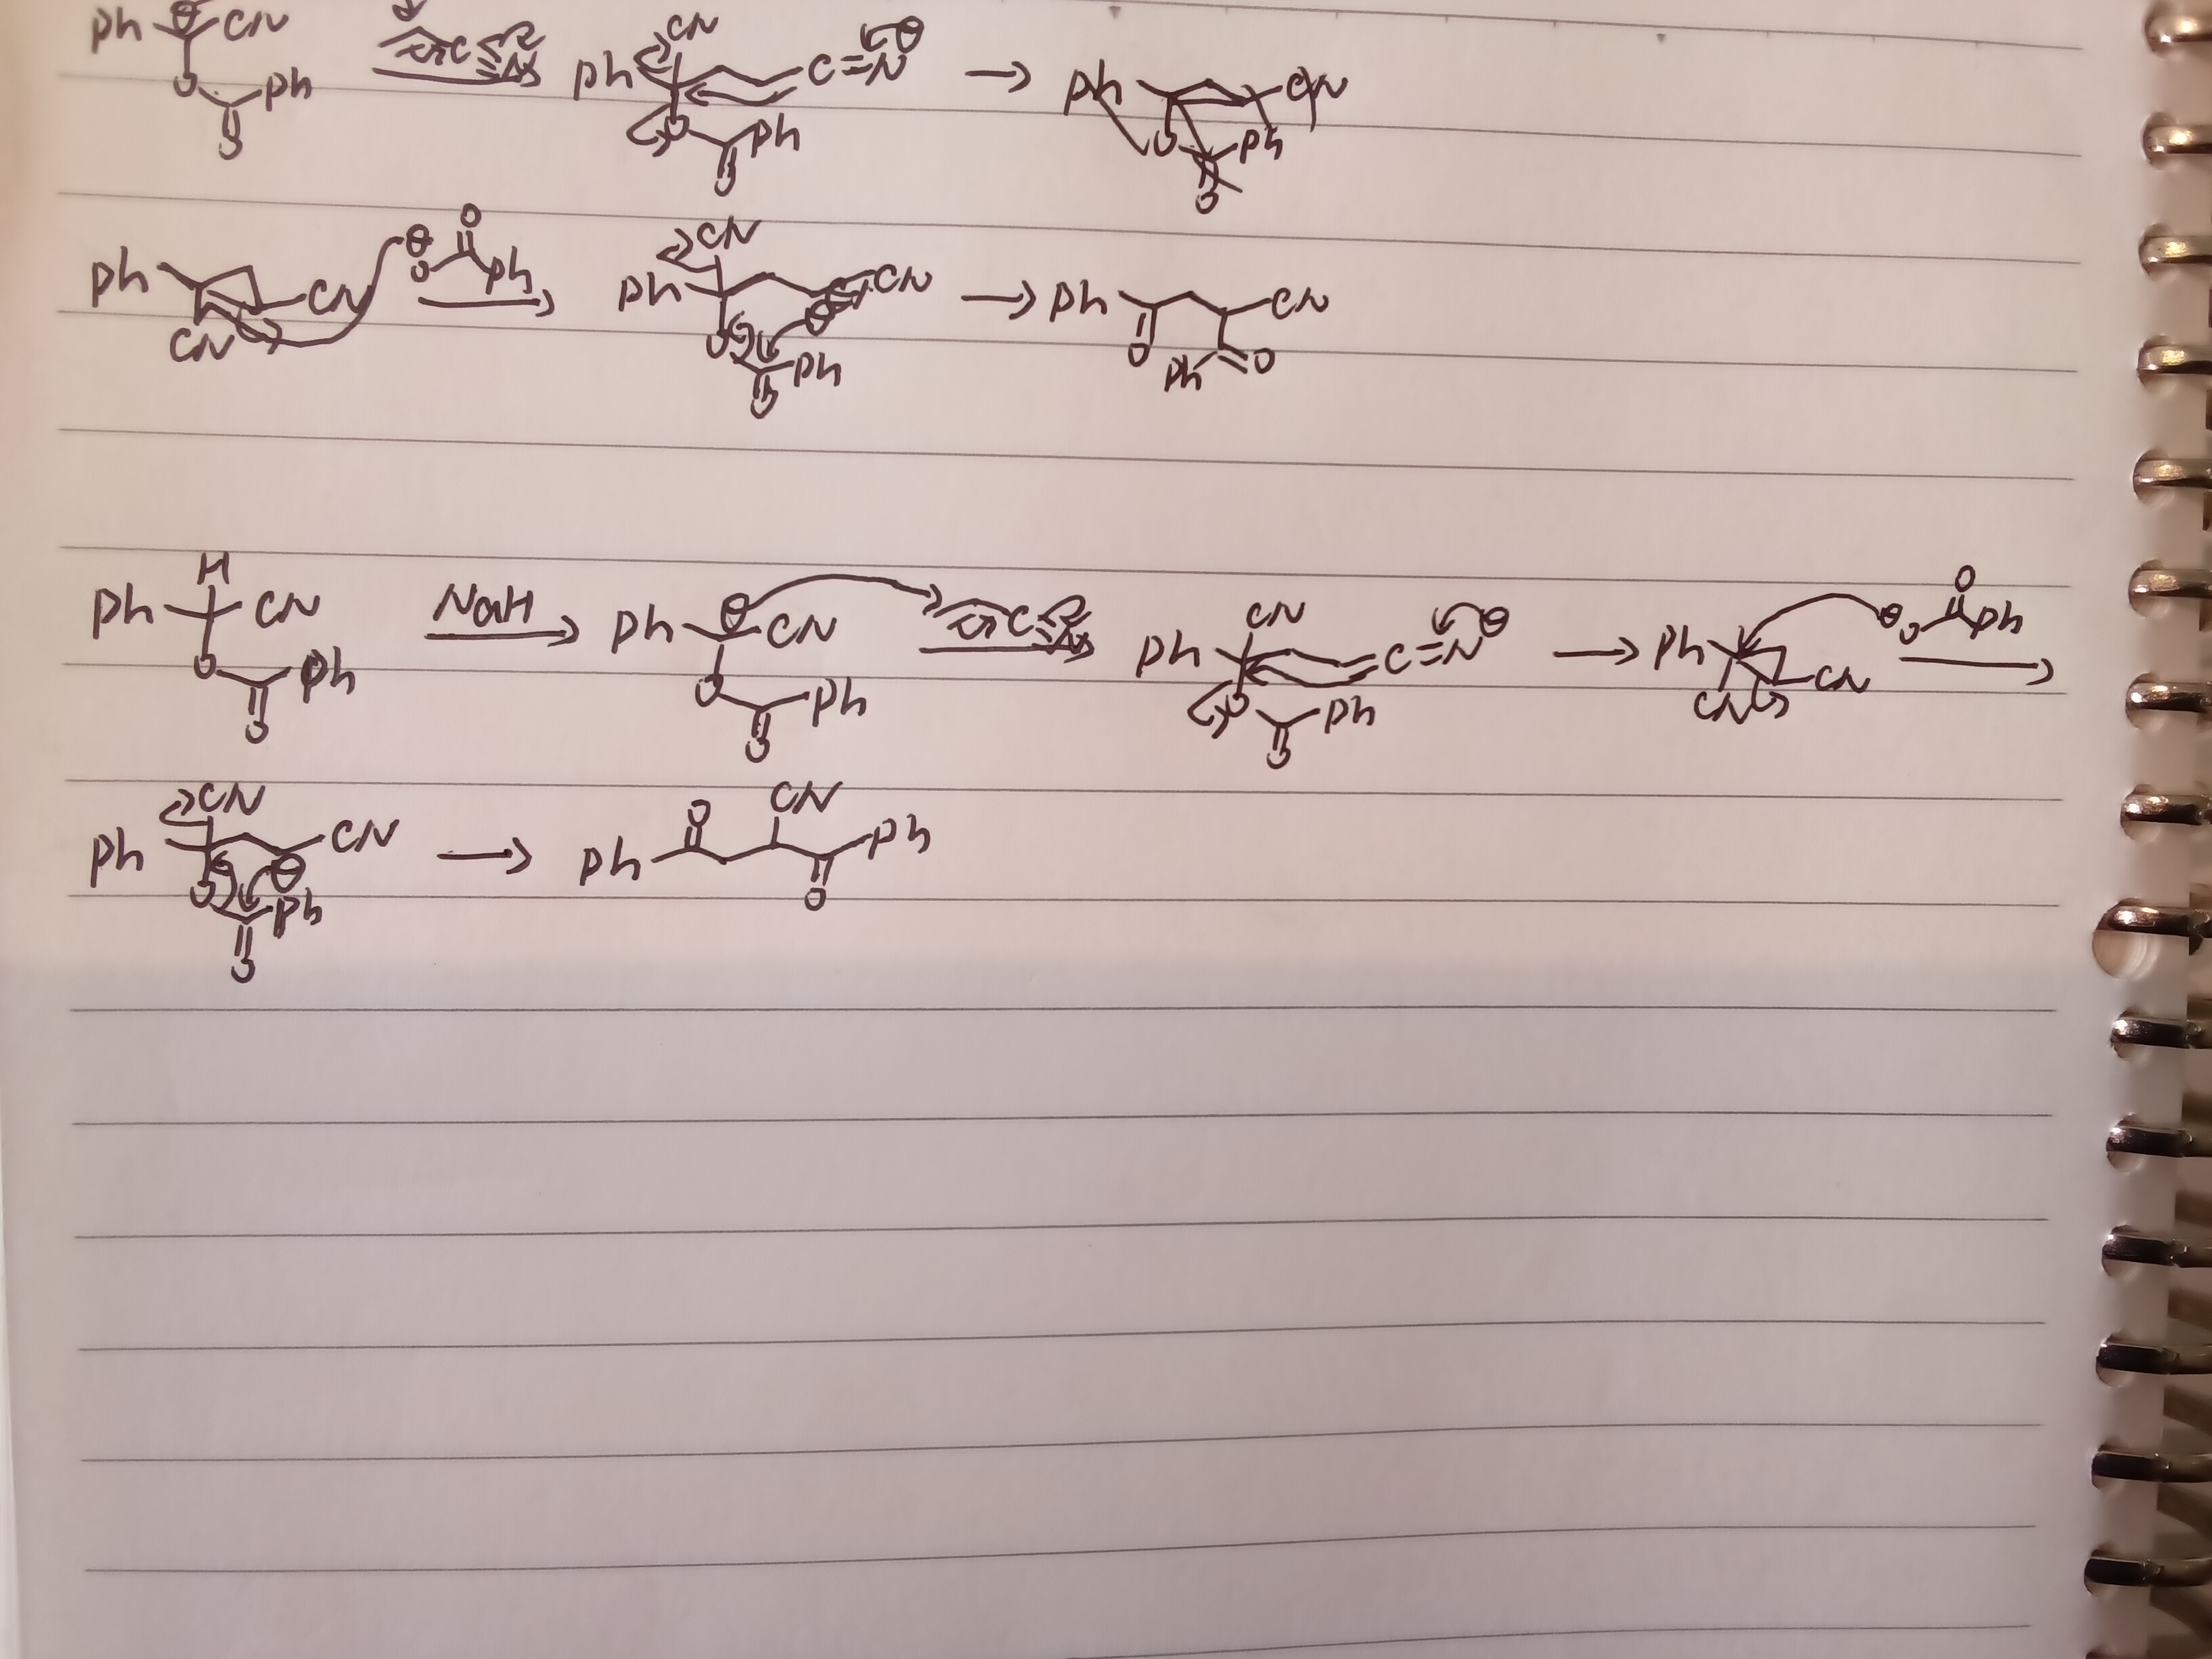 Ph ⊖ CN C≡N CN ⊖
Ph C=N → Ph CN
O Ph O Ph O Ph
O O O
Ph CN ⊖ O O Ph CN Ph CN → Ph CN
CN O Ph O ⊖ O Ph O
O
H
Ph CN NaH Ph ⊖ CN C≡N CN Ph C=N ⊖ → Ph CN CN ⊖ O O Ph
O Ph O Ph O Ph
O O O
CN O CN
Ph CN → Ph Ph
O ⊖ Ph O
O